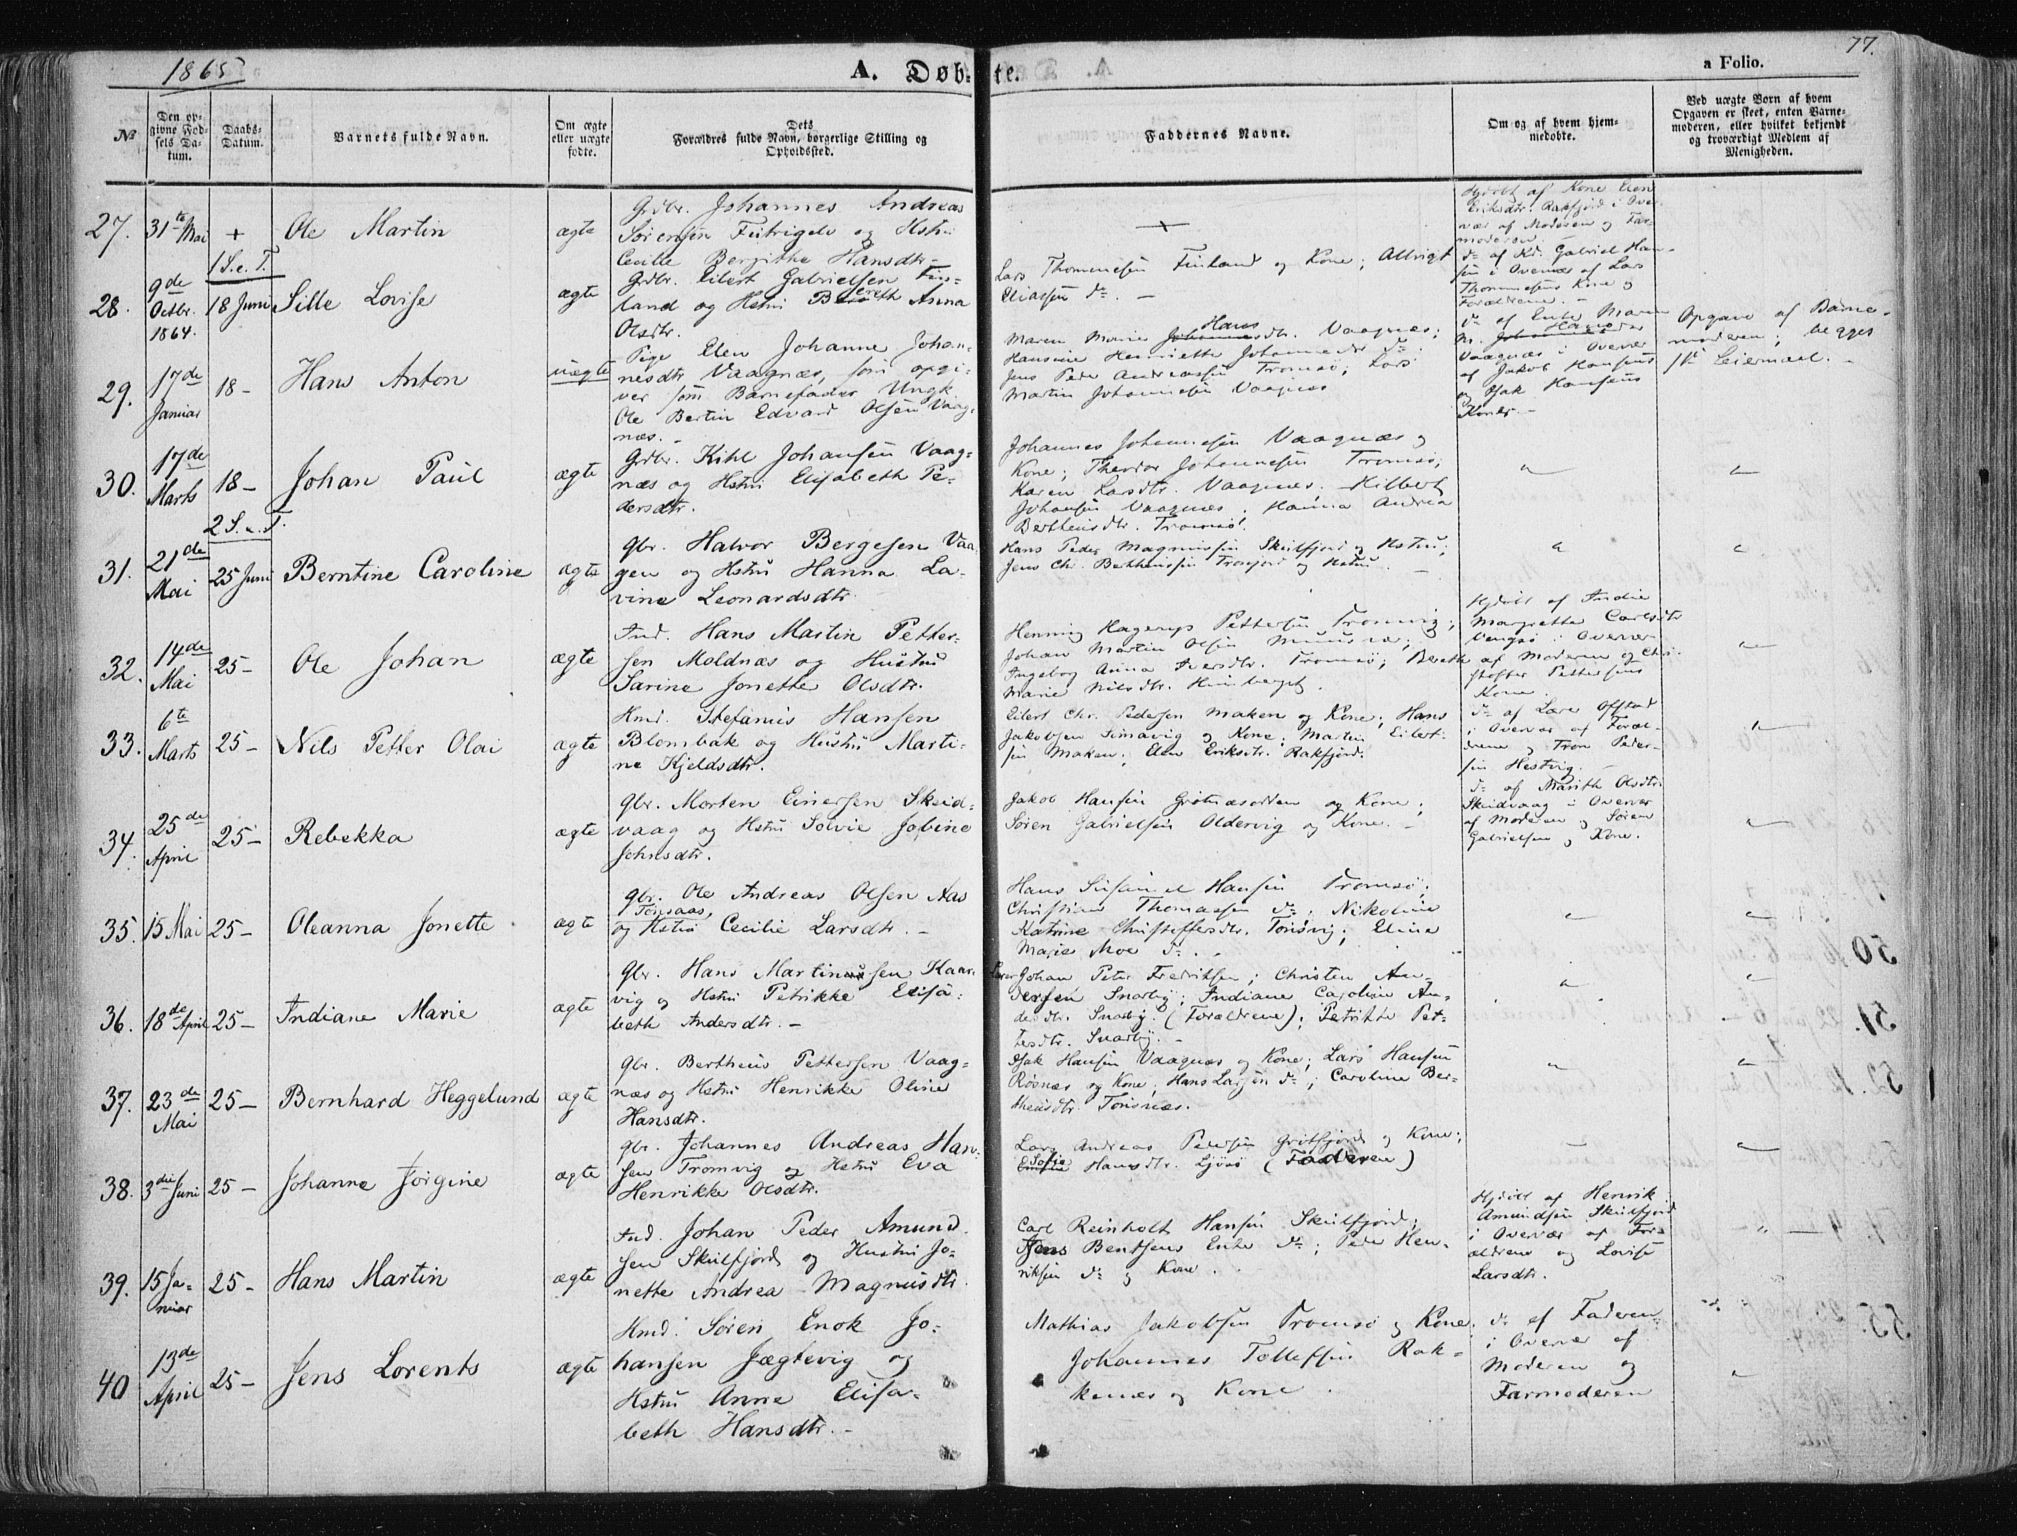 1865
A. Døbte.
77.
a Folio.
No
Den op-
givne Fød-
sels Da-
tum.
Daabs-
Datum.
Barnets fulde Navn.
Om ægte
eller uægte
fødte.
Dets
Forældres fulde Navn, borgerlige Stilling og
Opholdssted.
Faddernes Navne.
Om og af hvem hjem-
medøbte.
Ved uægte Børn af hvem
Opgaven er skeet, enten Barne-
moderen, eller hvilket bekjendt
og troværdigt Medlem af
Menigheden.
27.
31te Mai
+
Ole Martin
ægte
Grdbr. Johannes Andreas
Sörensen Futrigelv og Hstru
Cecilie Bergithe Hansdtr.
+
Hjdöbt af Kone Elen
Eriksdtr. Rakfjord i Over-
vær af Moderen og Far-
moderen
1 S. e. T.
28.
9de
Octbr.
1864.
18 Juni
Sille Lovise
ægte
Grdbr. Eilert Gabrielsen Fin-
land og Hstru Bereth Anna
Olsdtr.
Lars Thommesen Finland og Kone; Albrigt
Eliassen do. -
do af Kd. Gabriel Han-
sen i Overvær af Lars
Thommesens Kone og
Forældrene. -
29.
17de
Januar
18 -
Hans Anton
uægte
Pige Elen Johanne Johan-
nesdtr Vaagnæs, som opgi-
ver som Barnefader Ungk
Ole Bertin Edvard Olsen Vaag-
næs. -
Maren Marie Hansdtr. Vaagnæs;
Hansine Henriette Johannesdtr do;
Jens Peder Andreassen Tromsö; Lars
Martin Johannesen Vaagnæs
do af Enke Maren
M. Hansdtr
Vaagnæs i Overvær
af Jakob Hansens
og Isak Hansens
Koner. -
Opgave af Barne-
moderen; begges
1ste Leiermaal. -
30.
17de
Marts
18 -
Johan Paul
ægte
Grdbr. Kihl Johansen Vaag-
næs og Hstru Elisabeth Pe-
dersdtr.
Johannes Johannesen Vaagnæs og
Kone; Theodor Johannesen Tromsö;
Karen Larsdtr. Vaagnæs. Hilbert
Johansen Vaagnæs; Hanna Andrea
Berthensdtr. Tromsö.
2 S. e. T.
31.
21de
Mai
25 Juni
Berntine Caroline
ægte
Gbr. Halvor Bergesen Vaa-
gen og Hstru Hanna La-
vine Leonardsdtr
Hans Peder Magnussen Skulfjord og Hstru;
Jens Chr. Berthensen Tromsjord og Hstru. -
32.
14de
Mai
25 -
Ole Johan
ægte
Ind. Hans Martin Petter-
sen Moldnæs og Hustru
Sarine Jonette Olsdtr.
Henning Hagerup Pettersen Tromvig;
Johan Martin Olsen
Ingeborg Anna Iversdtr. Tromsö; Berethe
Marie Nilsdtr.
Hjdöbt af Indie
Margrethe Carlsdtr
Vengsö i Overvær
af Moderen og Chri-
stoffer Pettersens
Kone.
33.
6te
Marts
25 -
Nils Petter Olai
ægte
Hmd. Stefanus Hansen
Blombak og Hustru Marti-
ne Kjeldsdtr.
Eilert Chr. Pedersen Maken og Kone; Hans
Jakobsen Simavig og Kone; Martin Eilert-
sen Maken; Elen Eriksdtr. Rakfjord.
do af Lære Offstad
i Overvær af Foræl-
drene og Tron Peder-
sen Hestvig. -
34.
25de
April
25 -
Rebekka
ægte
Gbr. Morten Einersen Skeid-
vaag og Hstru Solvie Jobine
Johnsdtr.
Jakob Hansen Grötnæsodden og Kone;
Sören Gabrielsen Oldervig og Kone. -
do af Marith Olsdtr.
Skeidvaag i Overvær
af Moderen og Sören
Gabrielsen og Kone.
35.
15 Mai
25 -
Oleanna Jonette
ægte
Gbr. Ole Andreas Olsen Aas
Tonsaas,
og Hstru Cecilie Larsdtr. -
Hans Susamel Hansen Tromsö;
Christian Thomassen do; Nikoline
Katrine Christoffersdtr. Tonsvig; Eline
Marie Moe do.
36.
18de April
25 -
Indiane Marie
ægte
Gbr. Hans Martin sen Kaar-
vig og Hstru Petrikke Elisa-
beth Andersdtr. -
Johan Peter Fredriksen; Christen An-
dersen Snarby; Indiane Caroline An-
dersdtr. Snarby. (Forældrene); Petrikke Pet-
tersdtr. Snarby. -
37.
23de
Mai
25 -
Bernhard Heggelund
ægte
Gbr. Bertheus Pettersen Vaag-
næs og Hstru Henrikke Oline
Hansdtr.
Isak Hansen Vaagnæs og Kone; Lars Hansen
Rösnæs og Kone; Hans Larsen do; Caroline Ber-
theusdtr. Tonsnæs.
38.
3die Juni
25 -
Johanna Jörgine
ægte
Gbr. Johannes Andreas Han-
sen Tromvig og Hstru Eva
Henrikke Olsdtr.
Lars Andreas Pedersen Grötfjord og Kone;
Sofie Hansdtr. Sjövö (Faderen)
39.
15 Ja-
nuar
25 -
Hans Martin
ægte
Ind. Johan Peder Amund-
sen Skulfjord og Hustru Jo-
nette Andrea Magnusdtr.
Carl Reinholt Hansen Skulfjord;
Jens Bentsens Enke do; Peder Hen-
riksen do og Kone.
Hjdöbt af Henrik
Amundsen Skulfjord
i Overvær af For-
ældrene og Lovise
Larsdtr.
40
13de
April
25 -
Jens Lorents
ægte
Hmd. Sören Enok Jo-
hansen Jægtevig og
Hstru Anne Elisa-
beth Hansdtr. -
Mathias Jakobsen Tromsö og Kone;
Johannes Tollefsen Rak-
kenæs og Kone.
do af Faderen
i Overvær af
Moderen og
Farmoderen